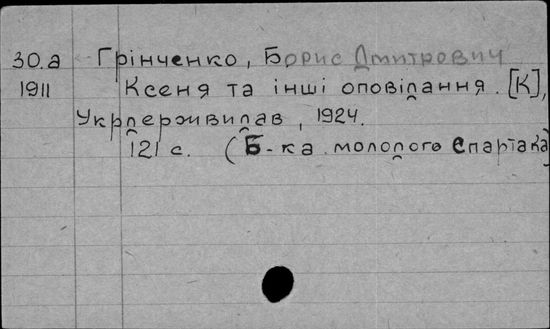 30.а Грінченко, Борис Дмитрович
1911 Ксеня та інші оповідання. [К],
Укрдерживидав, 1924.
121 с. (Б-ка молодого Спартака)